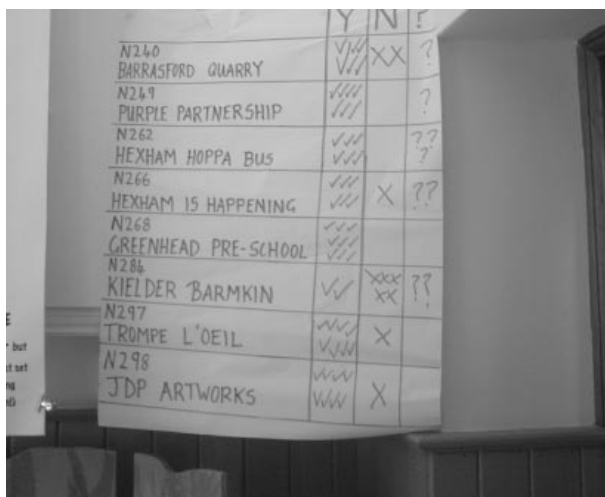 Y N ?
N240
BARRASFORD QUARRY ✓✓✓ XX ?
✓✓✓ ?
N249
PURPLE PARTNERSHIP ✓✓✓✓ ?
✓✓✓
N262
HEXHAM HOPPA BUS ✓✓✓ ??
✓✓✓ ?
N266
HEXHAM IS HAPPENING ✓✓✓ X ??
✓✓✓
N268
GREENHEAD PRE-SCHOOL ✓✓✓
✓✓✓
✓✓✓
N284
KIELDER BARMKIN ✓✓ XXX ??
XX
N297
TROMPE L'OEIL X
N298
JDP ARTWORKS X
but
set